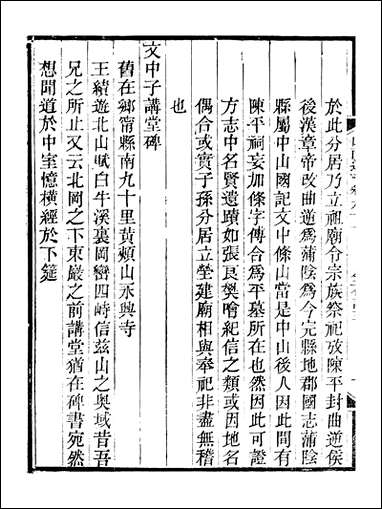 於此分居乃立祖廟令宗族祭祀攷陳平封曲逆侯
後漢章帝改曲逆為蒲陰為今完縣地郡國志蒲陰
縣屬中山國記文中條山當是中山後人因此間有
陳平祠妄加條字傅合為平墓所在也然因此可證
方志中名賢遺蹟如張良樊噲紀信之類或因地名
偶合或實子孫分居立塋建廟相與奉祀非盡無稽
也
文中子講堂碑
舊在鄉甯縣南九十里黃頰山永興寺
王績遊北山賦白牛溪裏岡巒四峙信茲山之奧域昔吾
兄之所止又云北岡之下東巖之前講堂猶在碑書宛然
想聞道於中室憶橫經於下筵